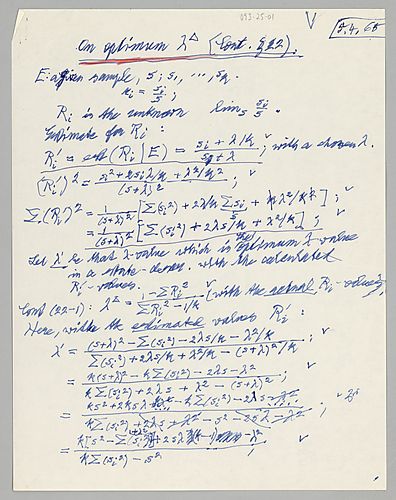 093-25-01
V
5.4.65
On optimum λ^Δ (Cont. § 22).
E: a given sample, s; s₁, ..., sₖ.
rᵢ = sᵢ/s ;
Rᵢ is the unknown limₛ sᵢ/s .
Estimate for Rᵢ:
Rᵢ' = est (Rᵢ | E) = (sᵢ + λ/k)/(s + λ) ; with a chosen λ.
(Rᵢ')² = (sᵢ² + 2sᵢλ/k + λ²/k²)/(s+λ)² ; √
Σᵢ(Rᵢ')² = 1/(s+λ)² [Σ(sᵢ²) + 2λ/k Σsᵢ + kλ²/k²] ; √
= 1/(s+λ)² [Σ(sᵢ²) + 2λs/k + λ²/k] ; √
Let λ' be that λ-value which is the optimum λ-value
in a state-descr. with the calculated
Rᵢ'-values.
Cont (22-1): λ^Δ = (1-ΣRᵢ²)/(ΣRᵢ² - 1/k) (with the actual Rᵢ-values);
Here, with the estimated values Rᵢ':
λ' = ((s+λ)² - Σ(sᵢ²) - 2λs/k - λ²/k)/(Σ(sᵢ²) + 2λs/k + λ²/k - (s+λ)²/k) ; √
= (k(s+λ)² - kΣ(sᵢ²) - 2λs - λ²)/(kΣ(sᵢ²) + 2λs + λ² - (s+λ)²) ; √
= (ks² + 2ksλ - kΣ(sᵢ²) - 2λs)/(kΣ(sᵢ²) + 2λs + λ² - s² - 2sλ - λ²) ; √
= (k[s² - Σ(sᵢ²)] + 2sλ)/(kΣ(sᵢ²) - s²) ; √